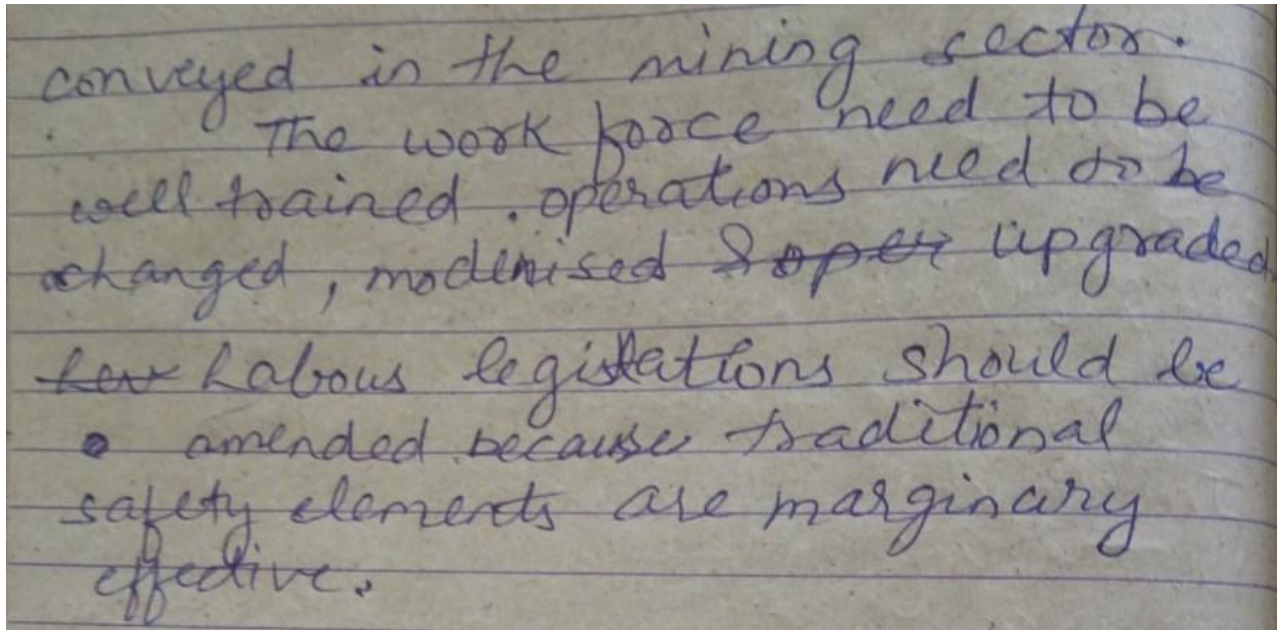 conveyed in the mining sector.
The work force need to be
well trained. operations need to be
changed, modernised upgraded.
Labour legislations should be
amended because traditional
safety elements are marginary
effective.